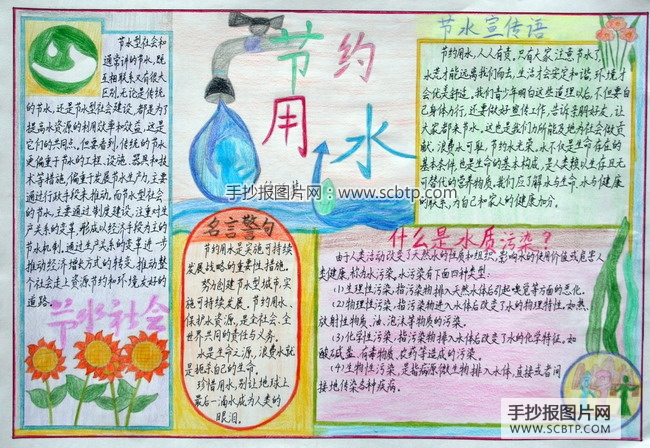 节水型社会和
通常讲的节水,既
互相联系又有很大
区别。无论是传统
的节水,还是节水型社会建设,都是为了
提高水资源的利用效率和效益,这是
它们的共同点。但要看到,传统的节水
更偏重于节水的工程、设施、器具和技
术等措施,偏重于发展节水生产力,主要
通过行政手段来推动。而节水型社会
的节水,主要通过制度建设,注重对生
产关系的变革,形成以经济手段为主的
节水机制。通过生产关系的变革进一步
推动经济增长方式的转变,推动整个
社会走上资源节约和环境友好的
道路。
节水社会
节约
用水
手抄报图片网:www.scbtp.com
名言警句
节约用水是实施可持续
发展战略的重要性措施。
努力创建节水型城市,实
施可持续发展。节约用水、
保护水资源,是全社会、全
世界共同的责任与义务。
水是生命之源,浪费水就
是扼杀自己的生命。
珍惜用水,别让地球上
最后一滴水成为人类的
眼泪。
节水宣传语
节约用水,人人有责。只有大家注意节水了,
水荒才能远离我们而去,生活才会安定和谐,环境才
会优美舒适。我们青少年明白这些道理以后,不但要自
己身体力行,还要做好宣传工作,告诉亲朋好友,让
大家都来节水。这也是我们力所能及地为社会做贡
献。浪费水可耻,节约水光荣。水不仅是生命存在的
基本条件,也是生命的基本构成,是人类赖以生存且无
可替代的营养物质。我们应了解水与生命、水与健康
的联系,为自己和家人的健康加分。
什么是水质污染?
由于人类活动改变了天然水的性质和组织,影响水的使用价值或危害人
类健康,称为水污染。水污染有下面四种类型:
(1)生理性污染:指污染物排入天然水体后引起嗅觉等方面的恶化。
(2)物理性污染:指污染物进入水体后改变了水的物理特性。如热、
放射性物质、油、泡沫等物质的污染。
(3)化学性污染:指污染物排入水体后改变了水的化学特征。如
酸碱盐、有毒物质、农药等造成的污染。
(4)生物性污染:是指病原微生物排入水体,直接或者间
接地传染各种疾病。
手抄报图片网
WWW.SCBTP.COM